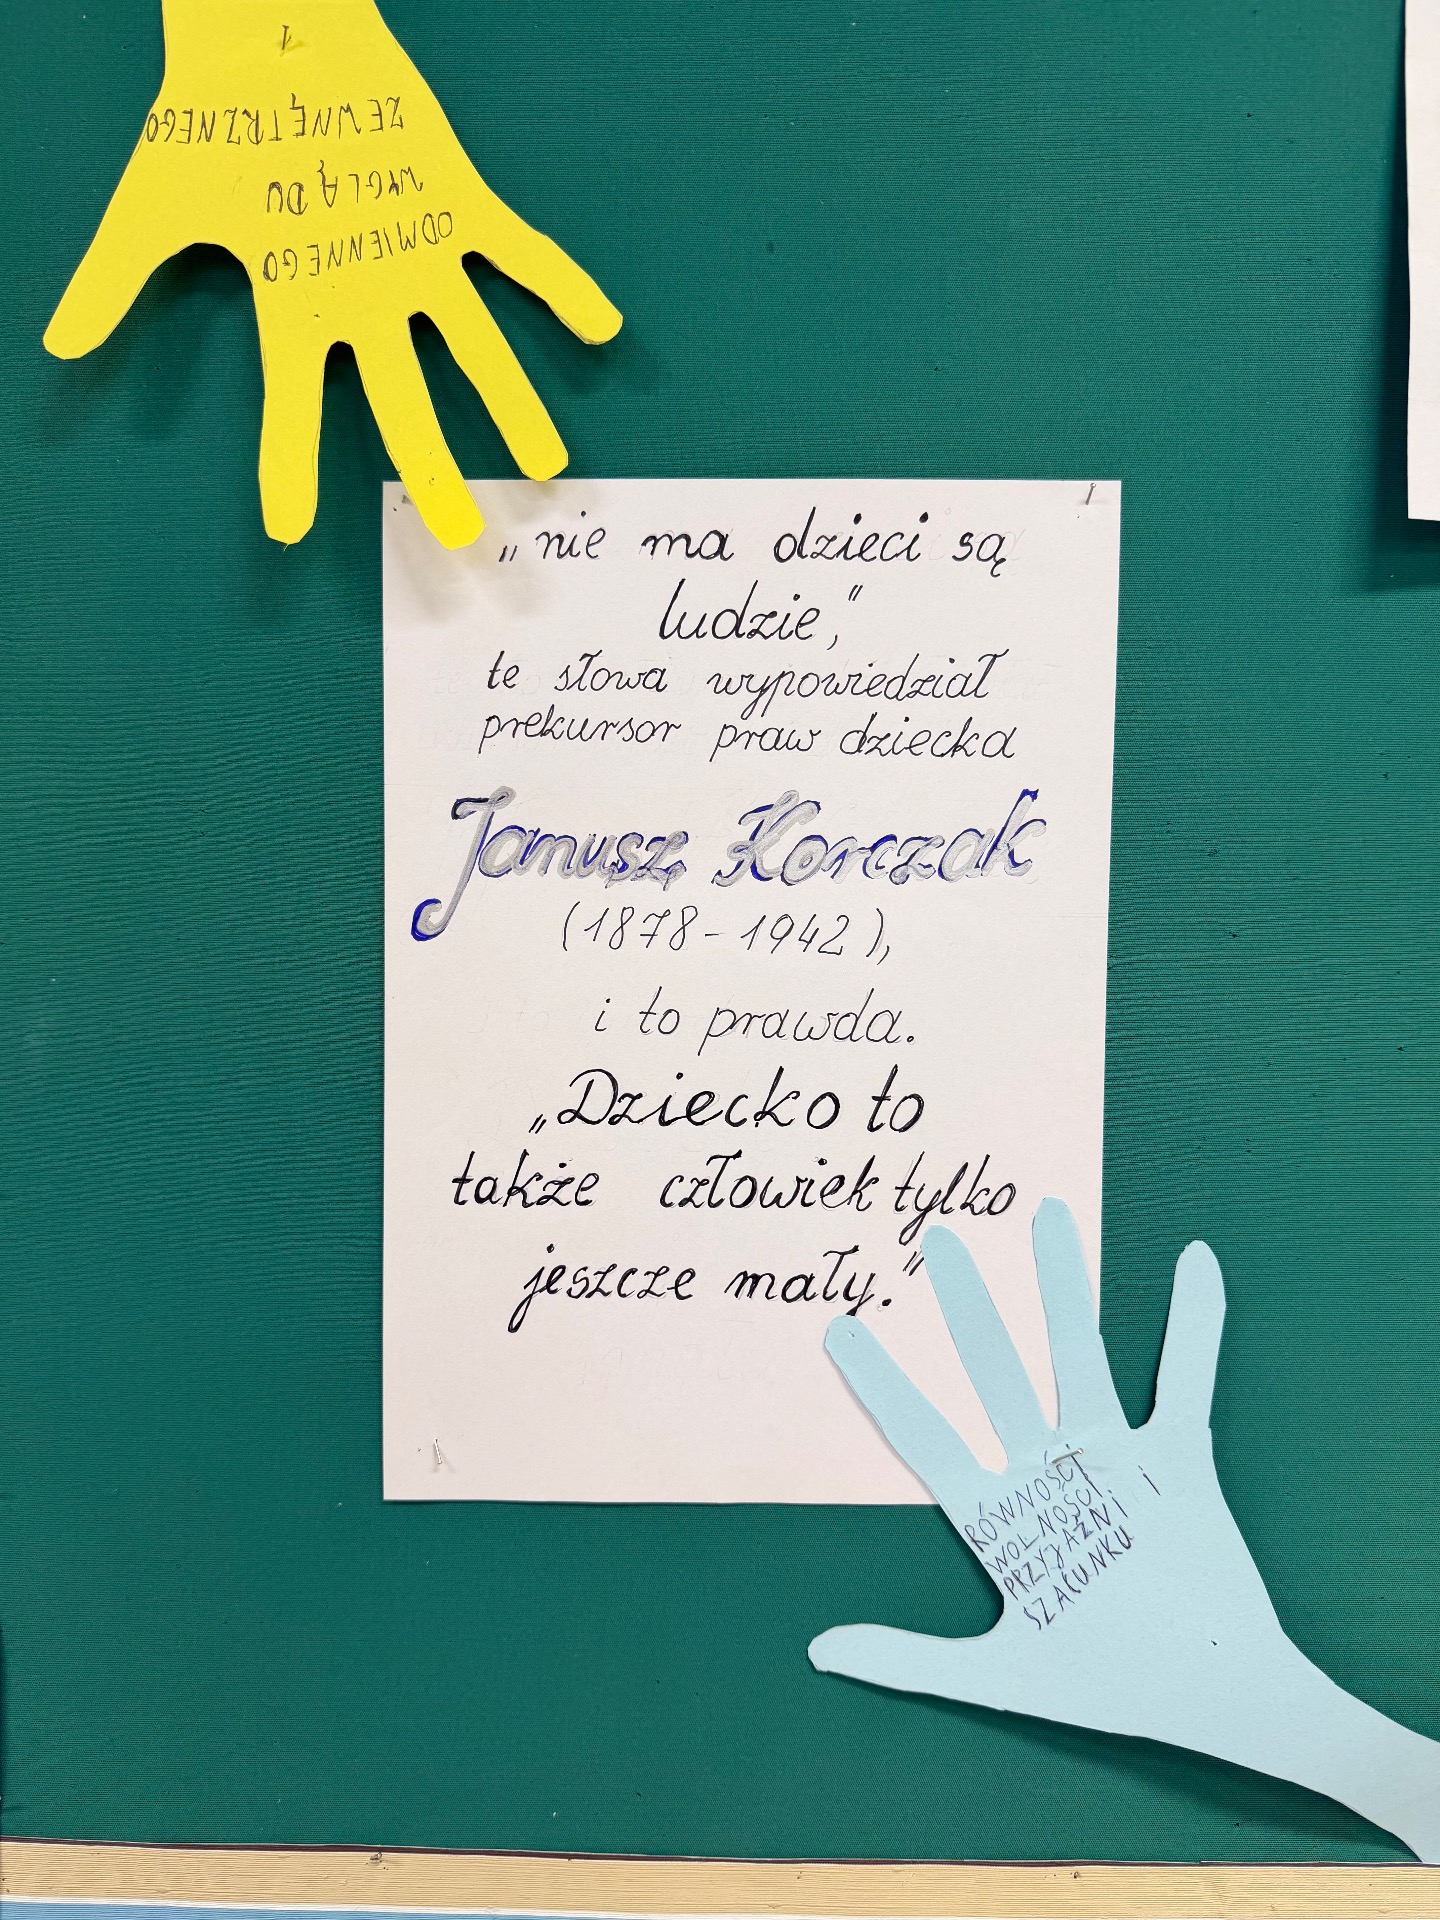 ODMIENNEGO
WYGLĄDU
ZEWNĘTRZNEGO
„nie ma dzieci są
ludzie,”
te słowa wypowiedział
prekursor praw dziecka
Janusz Korczak
(1878-1942),
i to prawda.
„Dziecko to
także człowiek tylko
jeszcze mały.”
RÓWNOŚCI
WOLNOŚCI
PRZYJAŹNI i
SZACUNKU